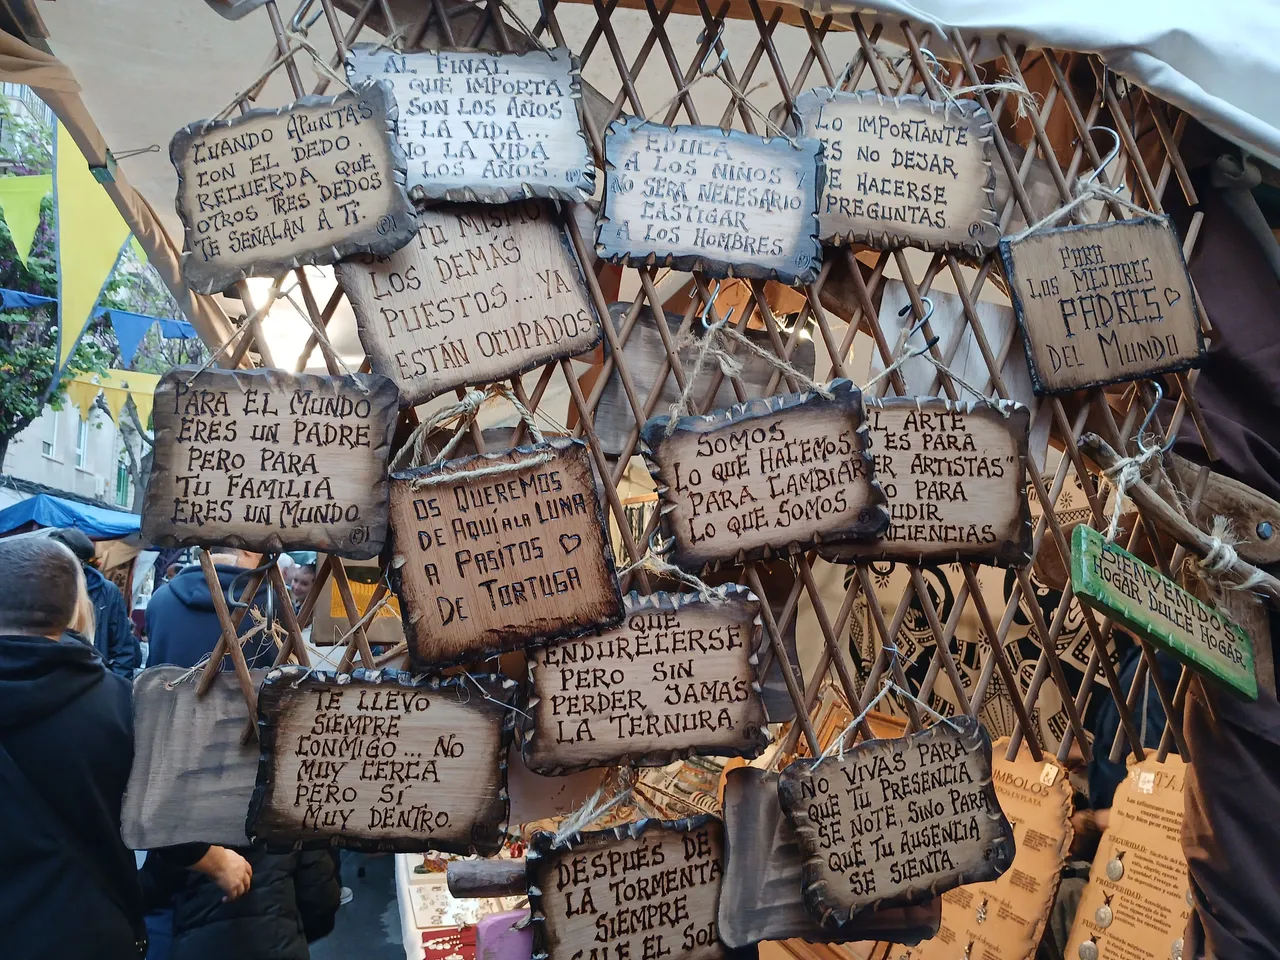 CUANDO APUNTAS
CON EL DEDO,
RECUERDA QUE
OTROS TRES DEDOS
TE SEÑALAN A TI.
AL FINAL
QUE IMPORTA
SON LOS AÑOS
LA VIDA...
NO LA VIDA
LOS AÑOS.
TU MISMO
LOS DEMÁS
PUESTOS... YA
ESTÁN OCUPADOS
EDUCA
A LOS NIÑOS
NO SERA NECESARIO
CASTIGAR
A LOS HOMBRES
LO IMPORTANTE
ES NO DEJAR
DE HACERSE
PREGUNTAS.
PARA
LOS MEJORES
PADRES
DEL MUNDO
PARA EL MUNDO
ERES UN PADRE
PERO PARA
TU FAMILIA
ERES UN MUNDO
OS QUEREMOS
DE AQUÍ A LA LUNA
A PASITOS
DE TORTUGA
SOMOS
LO QUE HACEMOS
PARA CAMBIAR
LO QUE SOMOS
EL ARTE
ES PARA
ARTISTAS"
PARA
BIENVENIDOS
HOGAR DULCE HOGAR
QUE
ENDURECERSE
PERO SIN
PERDER JAMÁS
LA TERNURA.
TE LLEVO
SIEMPRE
CONMIGO... NO
MUY CERCA
PERO SÍ
MUY DENTRO.
NO VIVAS PARA
QUE TU PRESENCIA
SE NOTE, SINO PARA
QUE TU AUSENCIA
SE SIENTA.
DESPUÉS DE
LA TORMENTA
SIEMPRE
SALE EL SOL
SEGURIDAD:
PROSPERIDAD: